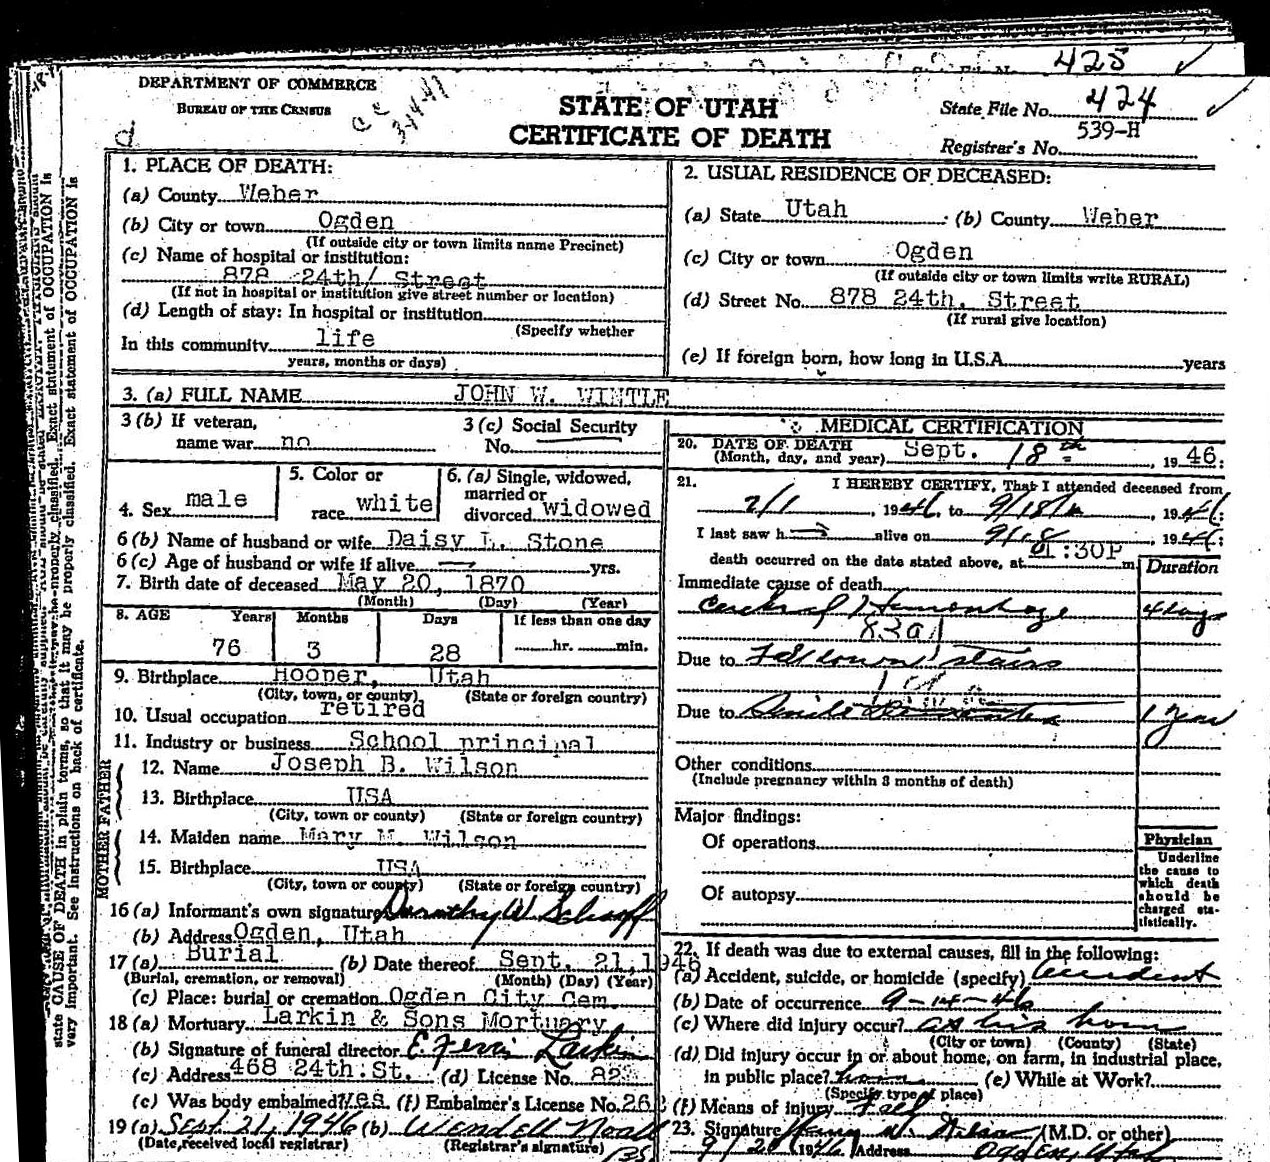 425
DEPARTMENT OF COMMERCE
BUREAU OF THE CENSUS
STATE OF UTAH
CERTIFICATE OF DEATH
State File No. 424
Registrar's No. 539-H
1. PLACE OF DEATH:
(a) County Weber
(b) City or town Ogden
(If outside city or town limits name Precinct)
(c) Name of hospital or institution:
878 24th/ Street
(If not in hospital or institution give street number or location)
(d) Length of stay: In hospital or institution
(Specify whether
In this community life
years, months or days)
2. USUAL RESIDENCE OF DECEASED:
(a) State Utah (b) County Weber
(c) City or town Ogden
(If outside city or town limits write RURAL)
(d) Street No. 878 24th. Street
(If rural give location)
(e) If foreign born, how long in U.S.A. years
3. (a) FULL NAME JOHN W. WINTLE
3 (b) If veteran, name war no
3 (c) Social Security No.
4. Sex male
5. Color or race white
6. (a) Single, widowed, married or divorced widowed
6 (b) Name of husband or wife Daisy L. Stone
6 (c) Age of husband or wife if alive yrs.
7. Birth date of deceased May 20, 1870
(Month) (Day) (Year)
8. AGE Years Months Days If less than one day
76 3 28 hr. min.
9. Birthplace Hooper, Utah
(City, town, or county) (State or foreign country)
10. Usual occupation retired
11. Industry or business School principal
FATHER
12. Name Joseph B. Wilson
13. Birthplace USA
(City, town or county) (State or foreign country)
MOTHER
14. Maiden name Mary M. Wilson
15. Birthplace USA
(City, town or county) (State or foreign country)
16 (a) Informant's own signature Dorothy W.
(b) Address Ogden, Utah
17 (a) Burial (b) Date thereof Sept. 21, 1946
(Burial, cremation, or removal) (Month) (Day) (Year)
(c) Place: burial or cremation Ogden City Cem
18 (a) Mortuary Larkin & Sons Mortuary
(b) Signature of funeral director E. Larkin
(c) Address 468 24th St. (d) License No. 82
(c) Was body embalmed? Yes (f) Embalmer's License No. 26
19 (a) Sept 21, 1946 (b) Wendell Noall
(Date received local registrar) (Registrar's signature)
MEDICAL CERTIFICATION
20. DATE OF DEATH
(Month, day, and year) Sept. 18th, 1946.
21. I HEREBY CERTIFY, That I attended deceased from
2/1, 1946 to 9/18/, 1946;
I last saw h alive on 9/18, 1946;
death occurred on the date stated above, at 1:30P m.
Duration
Immediate cause of death
Cerebral Hemorrhage 4 days
83a
Due to Fell down stairs
Due to Senile Dementia 1 year
Other conditions
(Include pregnancy within 3 months of death)
Major findings:
Of operations
Of autopsy
Physician
Underline the cause to which death should be charged statistically.
22. If death was due to external causes, fill in the following:
(a) Accident, suicide, or homicide (specify) Accident
(b) Date of occurrence 9-14-46
(c) Where did injury occur? at his home
(City or town) (County) (State)
(d) Did injury occur in or about home, on farm, in industrial place,
in public place? home (e) While at Work?
(Specify type of place)
(f) Means of injury Fall
23. Signature W. (M.D. or other)
9/20 1946 Address Ogden, Utah
state CAUSE OF DEATH in plain terms, so that it may be properly classified. Exact statement of OCCUPATION is
very important. See instructions on back of certificate.